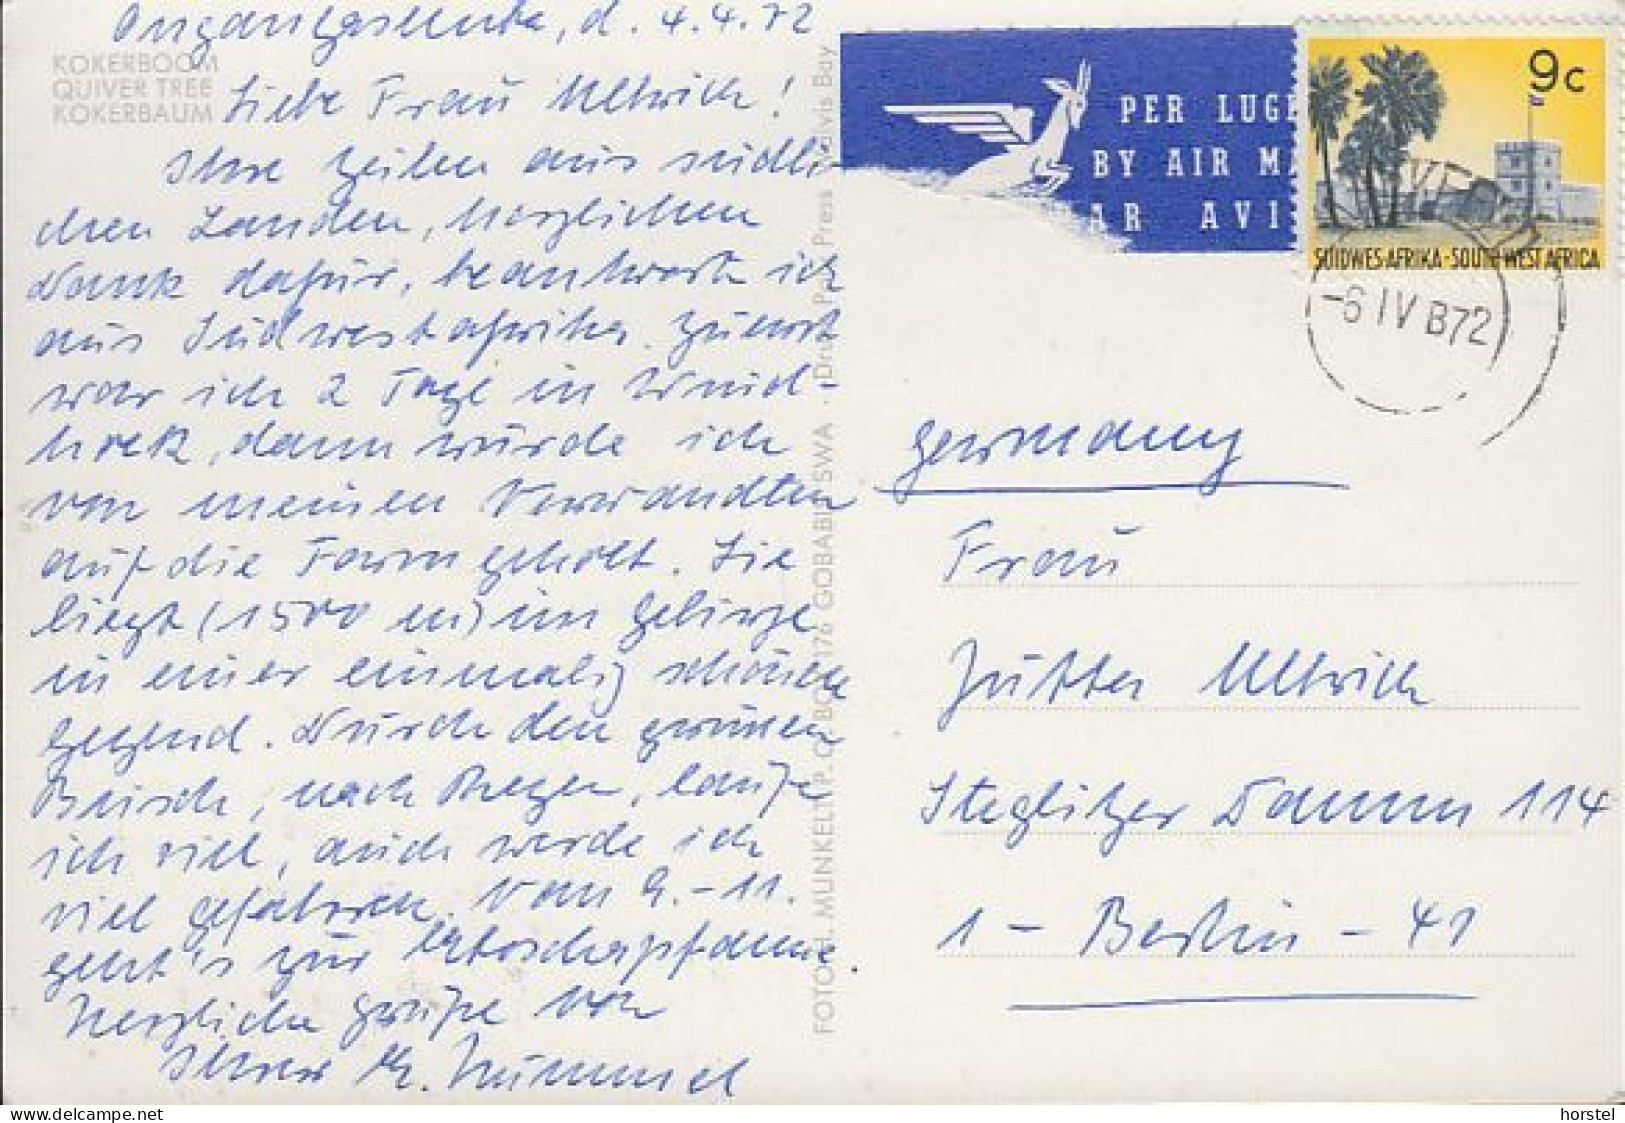 Ongangasemuta, d. 4.4.72
KOKERBOOM
QUIVER TREE
KOKERBAUM
Liebe Frau Ullrich!
Ihre Zeilen aus südli-
chen Landen, herzlichen
Dank dafür, beantworte ich
aus Südwestafrika. Zuerst
war ich 2 Tage in Wind-
hoek, dann wurde ich
von meinen Verwandten
auf die Farm geholt. Sie
liegt (1500 m) im Gebirge
in einer einmalig schönen
Gegend. Durch den grünen
Busch, nach Regen, laufe
ich viel, auch werde ich
viel gefahren. Vom 9.-11.
geht's zur Etoschapfanne.
Herzliche Grüße von
Ihrer M. Hümmel
FOTO H. MUNKELT P.O. BOX 176 GOBABIS SWA
Dr. P. Press Walvis Bay
PER LUG
BY AIR M
AR AVI
9c
SUIDWES-AFRIKA-SOUTH WEST AFRICA
-6 IV B72
Germany
Frau
Jutta Ullrich
Steglitzer Damm 114
1 - Berlin - 41
horstel
© www.delcampe.net